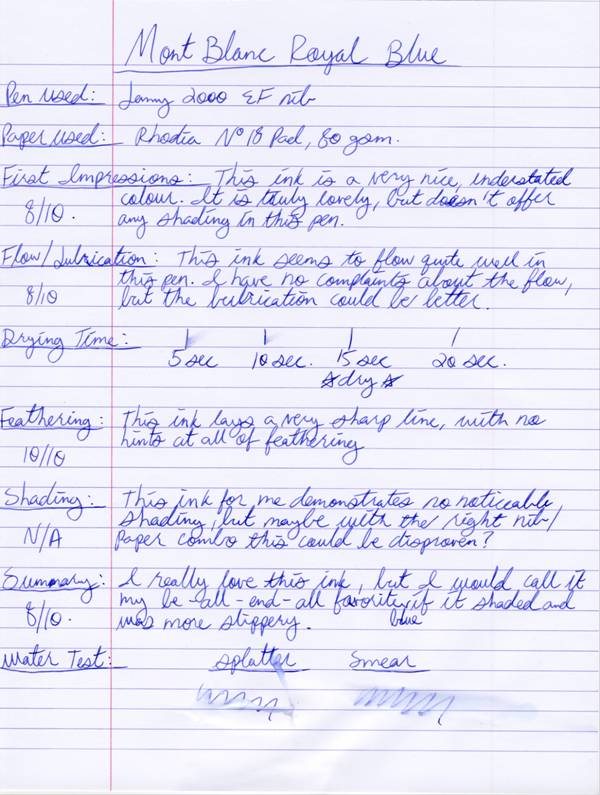 Mont Blanc Royal Blue
Pen Used: Lamy 2000 EF nib
Paper Used: Rhodia N°18 Pad, 80 gsm.
First Impressions: This ink is a very nice, understated
colour. It is truly lovely, but doesn't offer
8/10. any shading in this pen.
Flow/Lubrication: This ink seems to flow quite well in
this pen. I have no complaints about the flow,
8/10 but the lubrication could be better.
Drying Time:
5 sec 10 sec. 15 sec 20 sec.
☆dry☆
Feathering: This ink lays a very sharp line, with no
hints at all of feathering
10/10
Shading: This ink for me demonstrates no noticeable
shading, but maybe with the right nib/
N/A paper combo this could be disproven?
Summary: I really love this ink, but I would call it
my be-all-end-all favorite blue if it shaded and
8/10. was more slippery.
Water Test: splatter smear